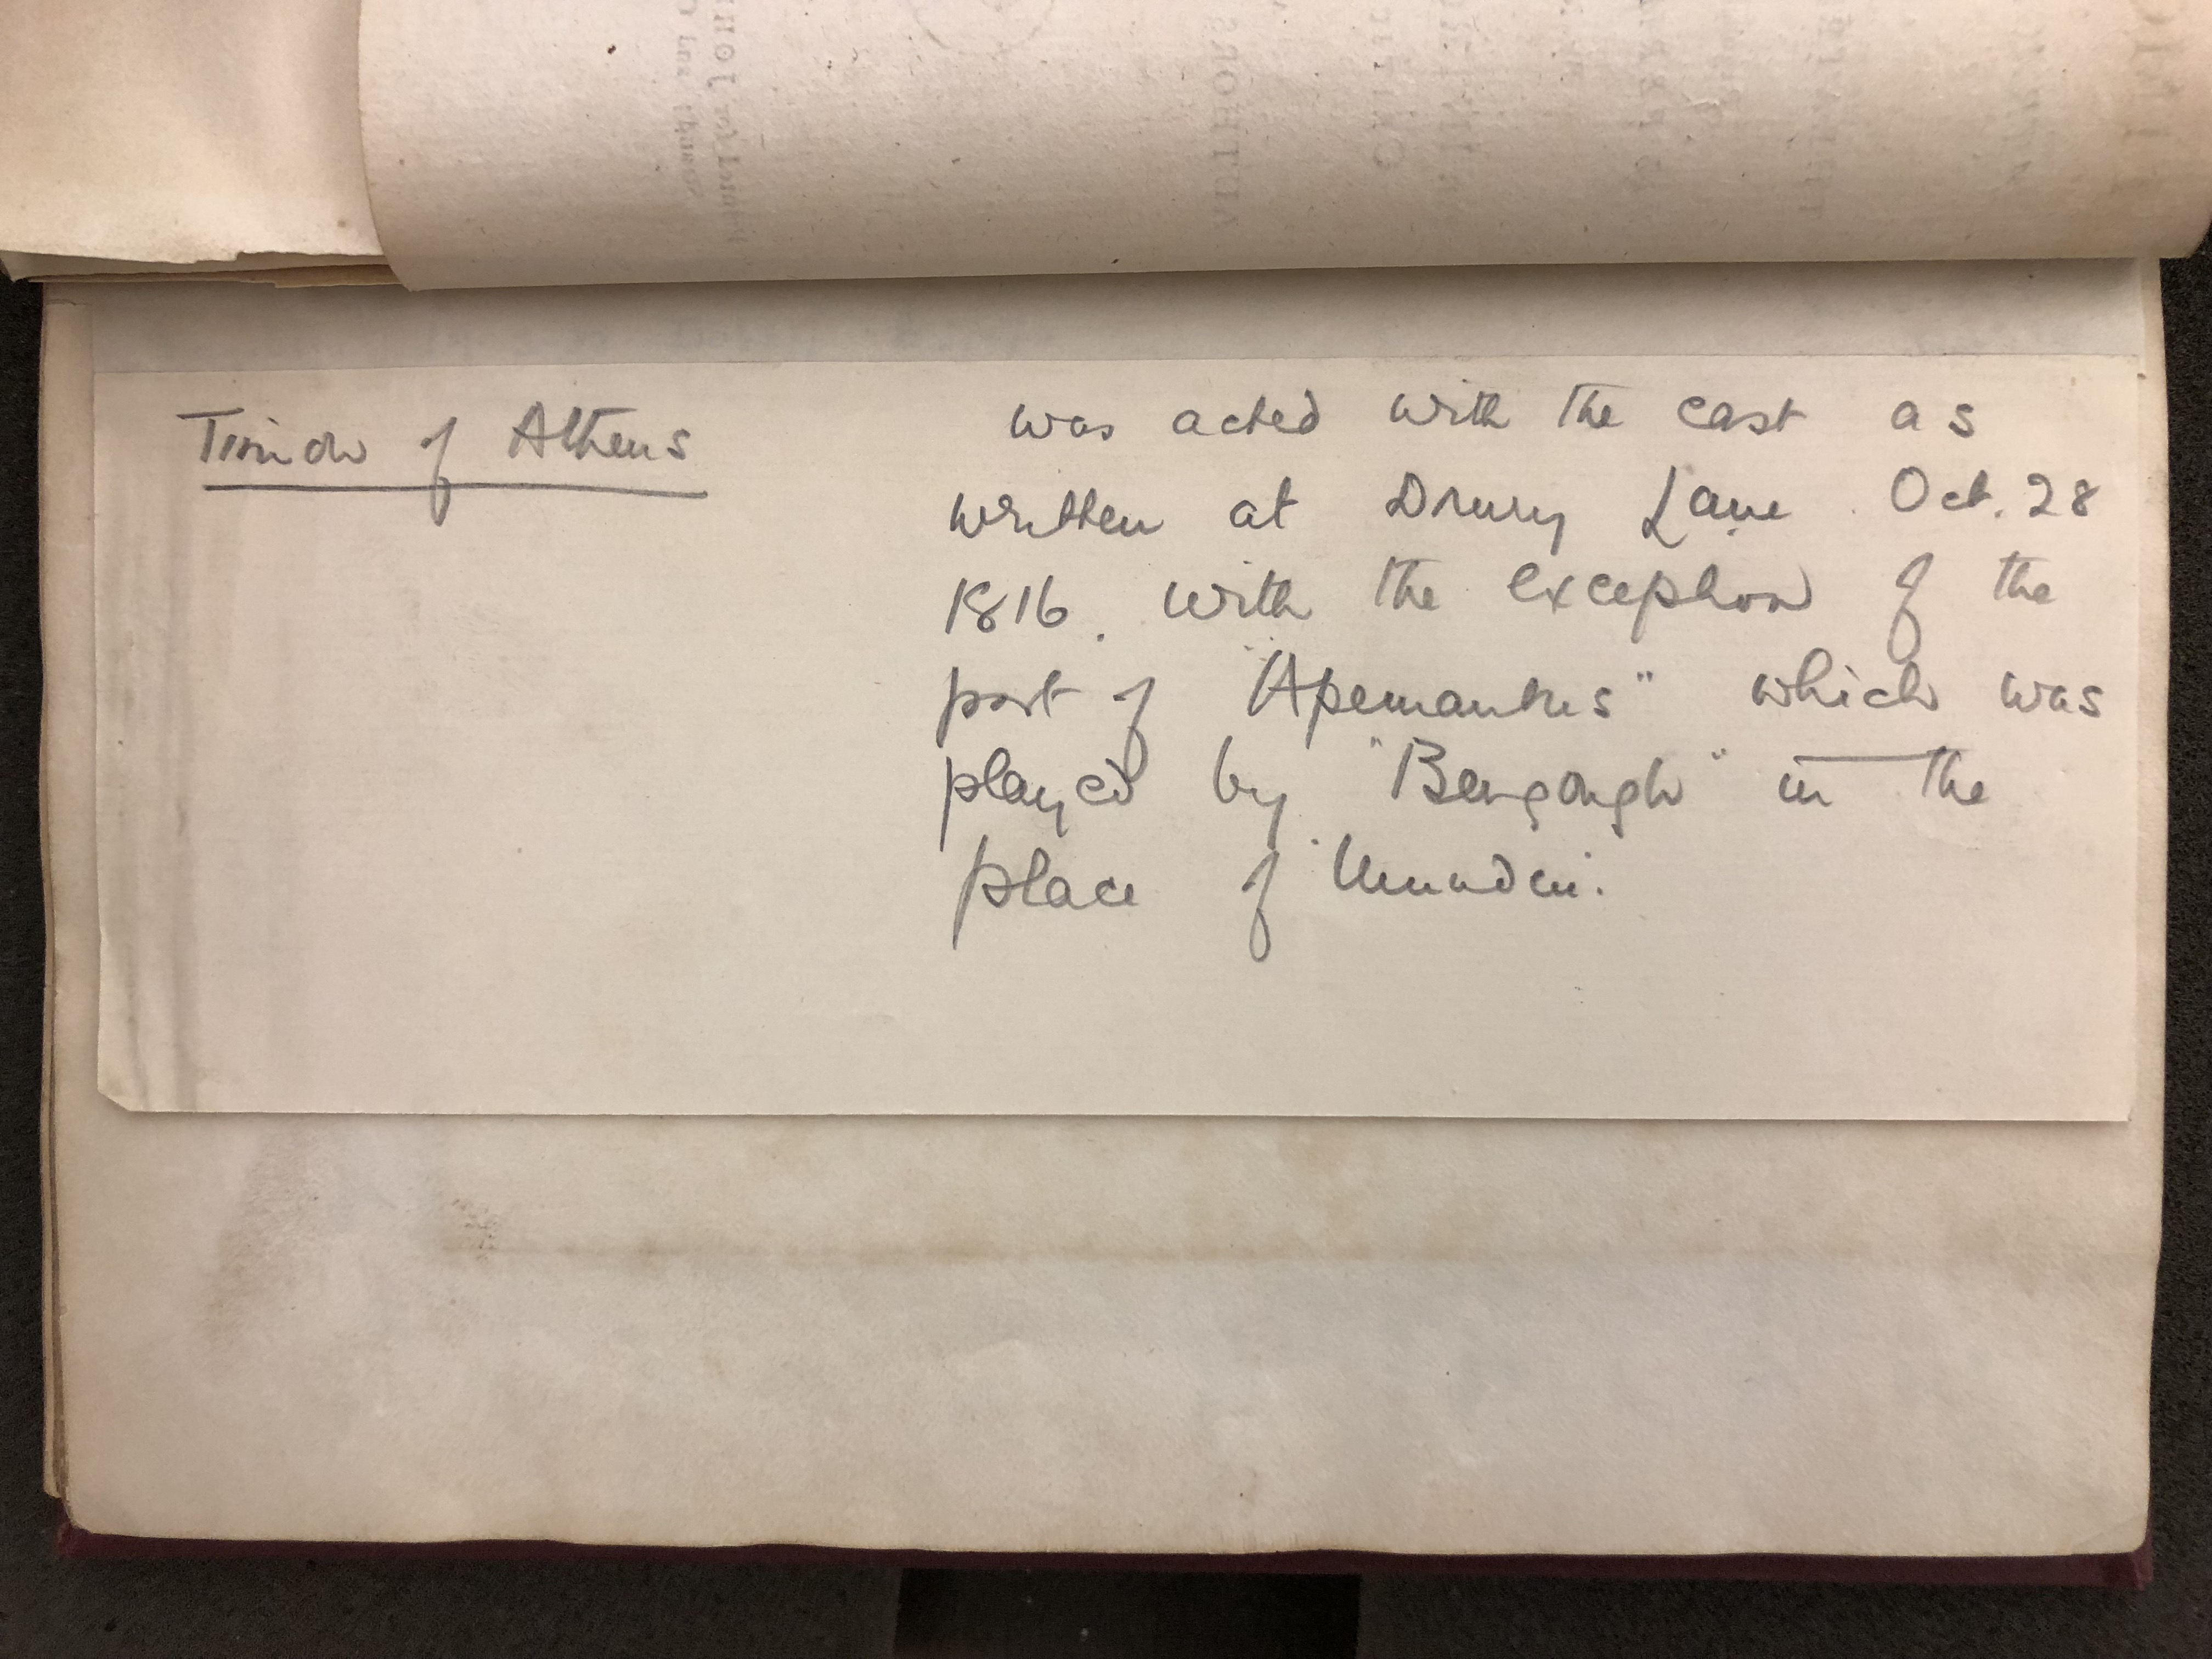 Timon of Athens
was acted with the cast as
written at Drury Lane. Oct. 28
1816. with the exception of the
part of "Apemantus" which was
played by "Bengough" in the
place of Munden.